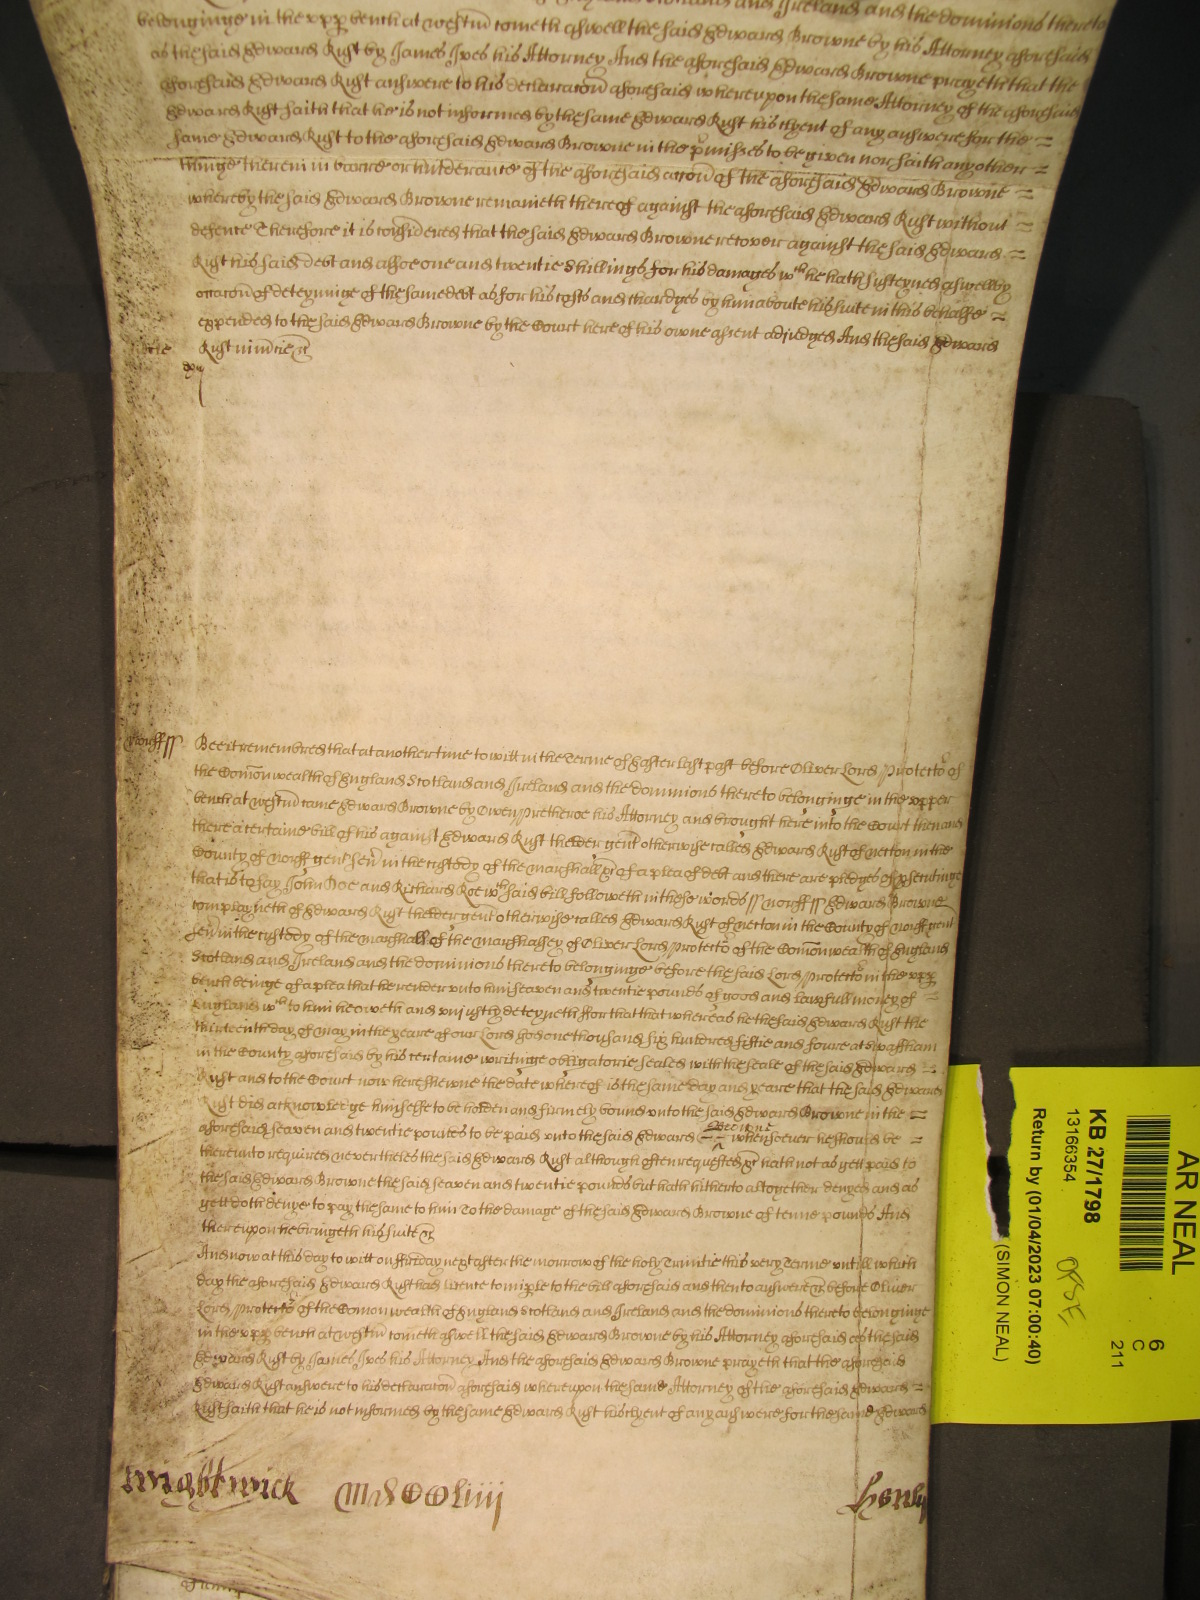 belonginge in the upp bench at Westm cometh aswell the said Edward Browne by his Attorney aforesaid
as the said Edward Rust by James Ives his Attorney And the aforesaid Edward Browne prayeth that the
aforesaid Edward Rust answere to his declaracon aforesaid whereupon the same Attorney of the aforesaid
Edward Rust saith that he is not informed by the same Edward Rust his Clyent of any answere for the =
same Edward Rust to the aforesaid Edward Browne in the pmisses to be given nor saith any other =
thinge therein in barre or hinderance of the aforesaid accon of the aforesaid Edward Browne =
whereby the said Edward Browne remaineth thereof against the aforesaid Edward Rust without =
defence Therefore it is considered that the said Edward Browne recover against the said Edward =
Rust his said debt and alsoe one and twentie shillings for his damages wch he hath susteyned aswell by
occacon of deteyninge of the same debt as for his costs and chardges by him aboute his suite in this behalfe =
expended to the said Edward Browne by the Court here of his owne assent adjudged And the said Edward
Rust in mcie &c
Norff ss Bee it remembred that at another time to witt in the Terme of Easter last past before Oliver Lord Protector of
the Comonwealth of England Scotland and Ireland and the dominions thereto belonginge in the upper
bench at Westm came Edward Browne by Owen Pretheroe his Attorney and brought here into the Court then and
there a certaine bill of his against Edward Rust thelder gent otherwise called Edward Rust of Necton in the
County of Norff gent Sen in the custody of the marshall &c of a plea of debt and there are pledges of psecutinge
that is to say John Doe and Richard Roe wch said bill followeth in these words ss Norff ss Edward Browne
complayneth of Edward Rust thelder gent otherwise called Edward Rust of Necton in the County of Norff gent
Sen in the custody of the marshall of the marshalsey of Oliver Lord Protector of the Comonwealth of England
Scotland and Ireland and the dominions thereto belonginge before the said Lord Protector in the upp
bench beinge of a plea that he render unto him seaven and twentie pounds of good and lawfull money of =
England wch to him he oweth and unjustly deteyneth ffor that that whereas he the said Edward Rust the
thirteenth day of May in the yeare of our Lord God one thousand six hundred fiftie and foure at Swaffham
in the County aforesaid by his certaine writinge obligatorie sealed with the seale of the said Edward =
Rust and to the Court now here shewne the date whereof is the same day and yeare that the said Edward
Rust did acknowledge himselfe to be holden and firmely bound unto the said Edward Browne in the =
aforesaid seaven and twentie poundes to be paid unto the said Edward Browne whensoever he should be =
thereunto required nevertheles the said Edward Rust although often requested &c hath not as yett paid to
the said Edward Browne the said seaven and twentie pounds but hath hitherto altogether denyed and as
yett doth denye to pay the same to him To the damage of the said Edward Browne of tenne pounds And
thereupon he bringeth his suite &c
And now at this day to witt on ffriday next after the morrow of the holy Trinitie this very Terme untill which
day the aforesaid Edward Rust had licence to imple to the bill aforesaid and then to answere &c before Oliver
Lord Protector of the Comonwealth of England Scotland and Ireland and the dominions thereto belonginge
in the upp bench at Westm cometh aswell the said Edward Browne by his Attorney aforesaid as the said
Edward Rust by James Ives his Attorney And the aforesaid Edward Browne prayeth that the aforesaid
Edward Rust answere to his declaracon aforesaid whereupon the same Attorney of the aforesaid Edward =
Rust saith that he is not informed by the same Edward Rust his Clyent of any answere for the same Edward
Wightwick
Henley
AR NEAL
KB 27/1798
13166354
Return by (01/04/2023 07:00:40)
(SIMON NEAL)
6
C
211